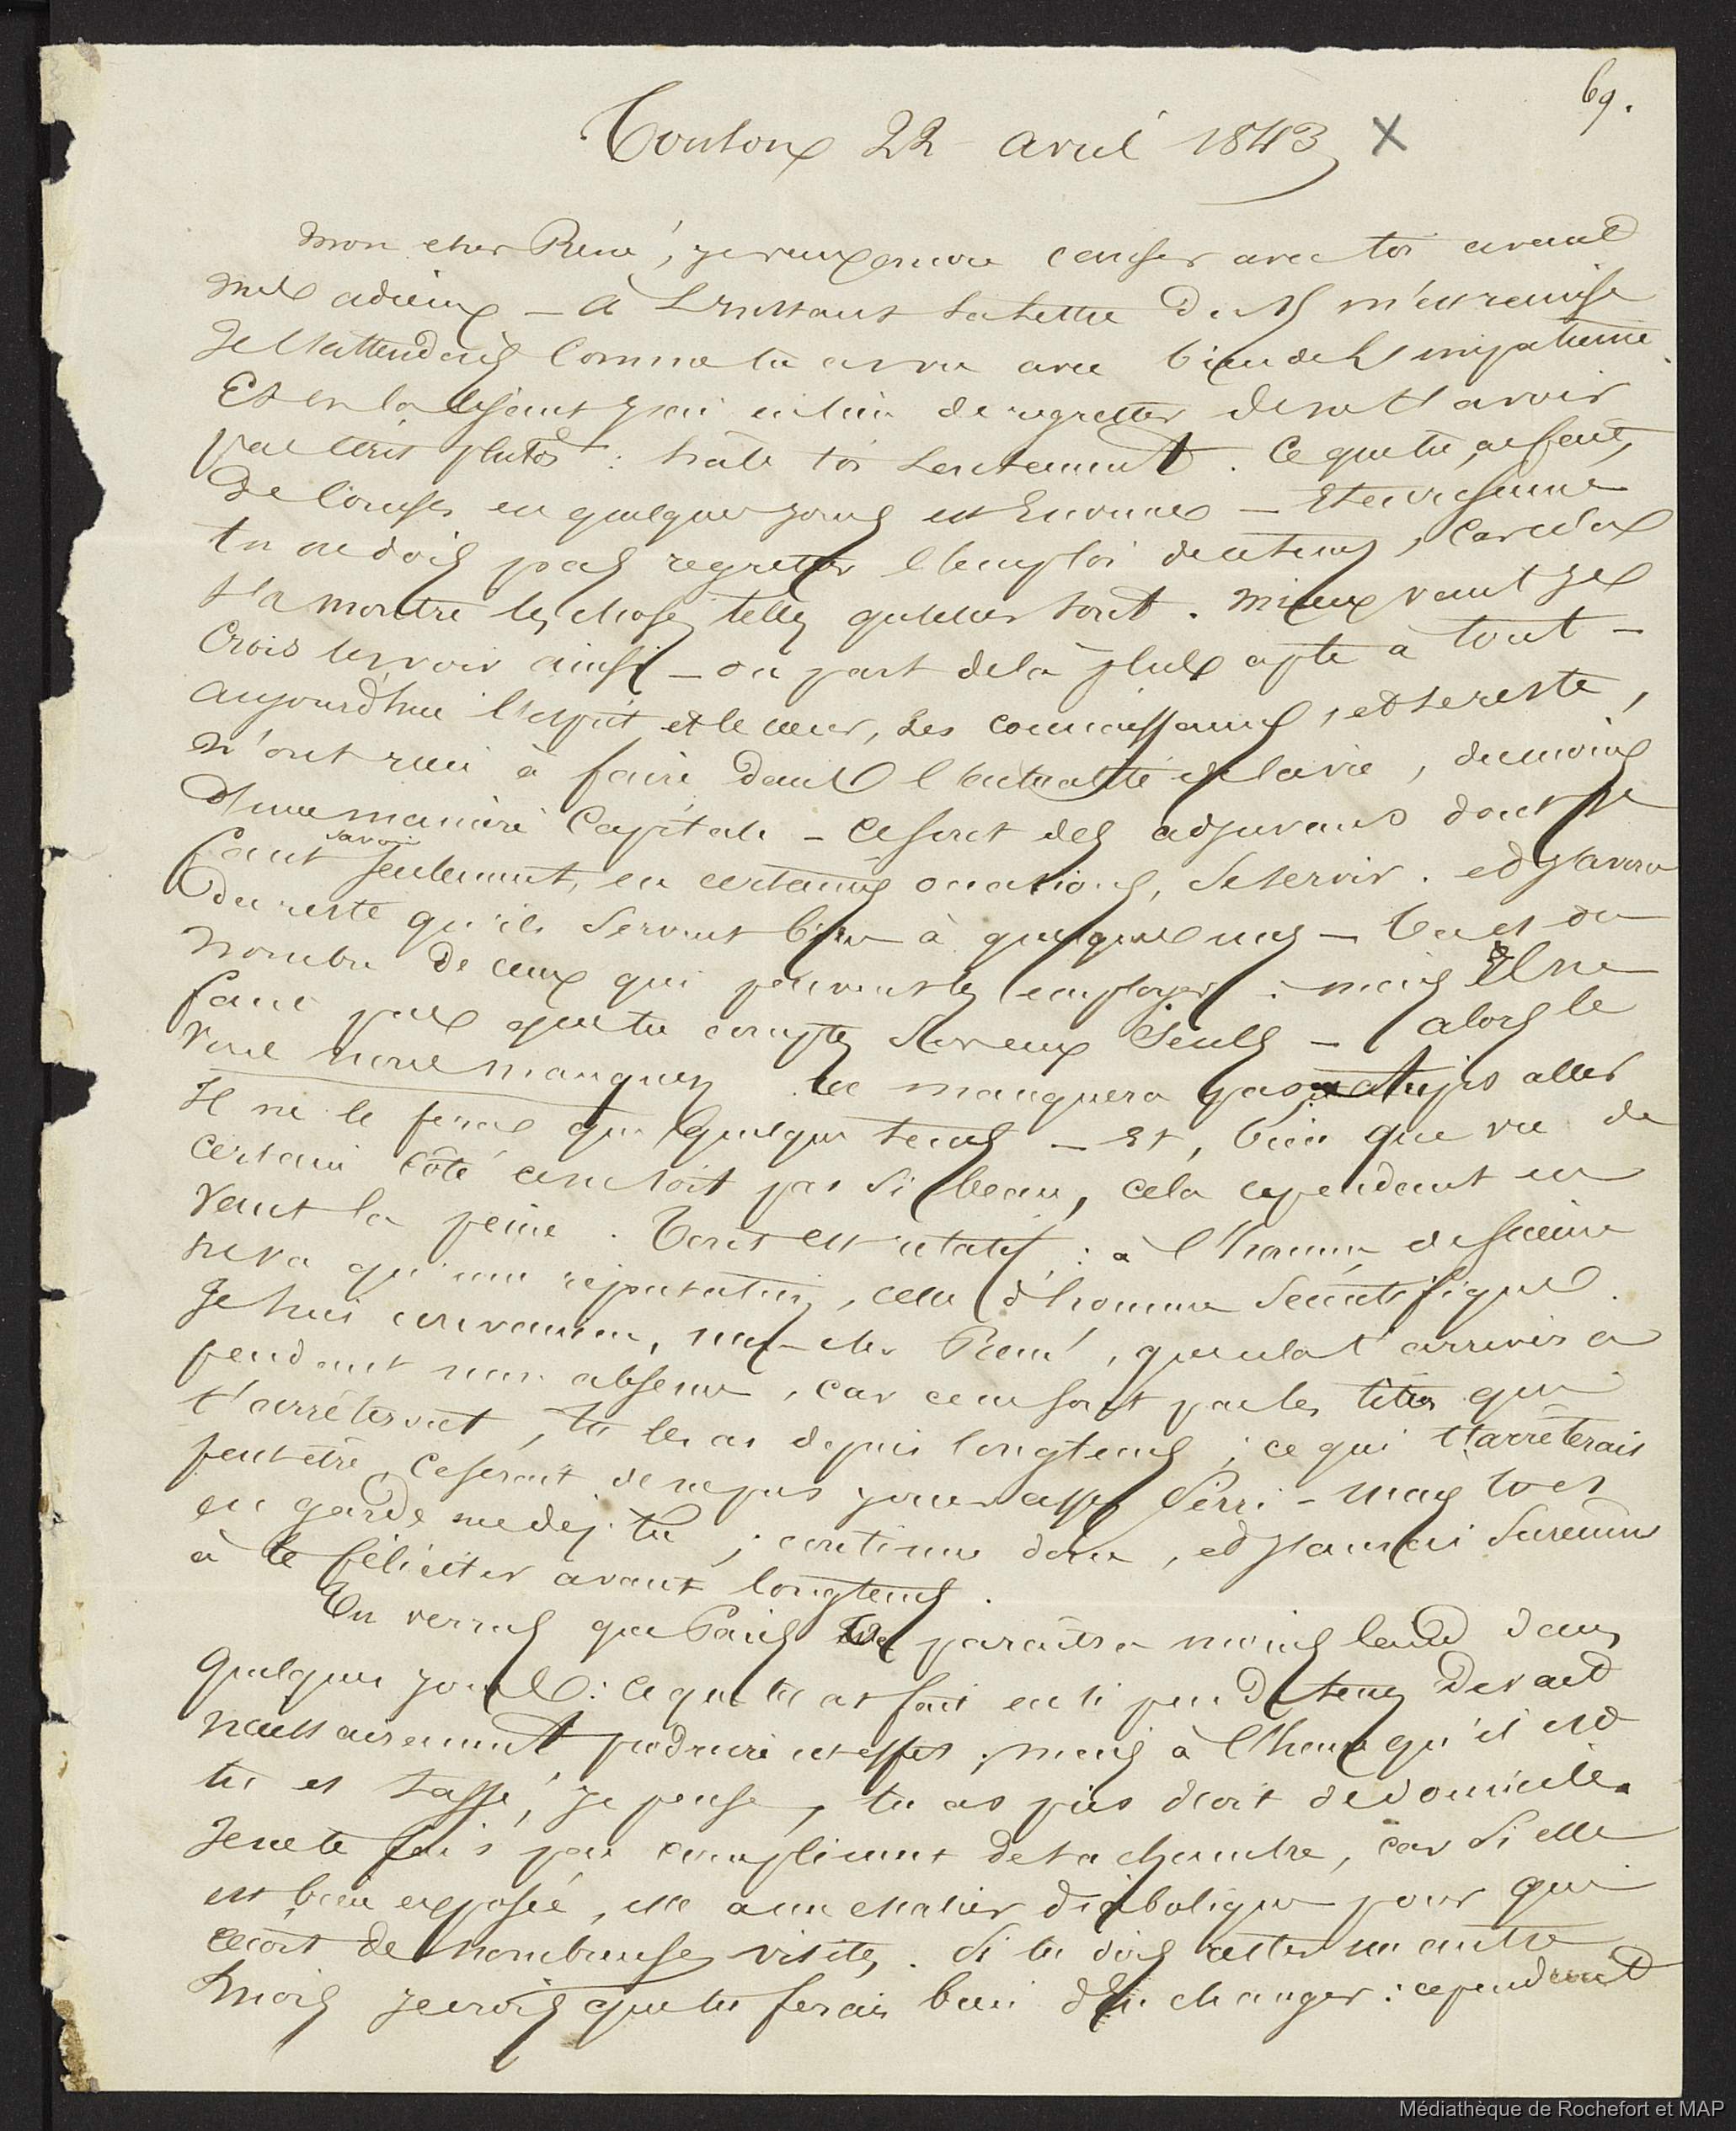 69.
Toulon 22 avril 1843 X
Mon cher René, je veux encore causer avec toi avant
mes adieux – à l'instant ta lettre du 18 m'est remise
Je l'attendais comme tu as vu avec bien de l'impatience.
Et en la lisant j'ai eu lieu de regretter de ne t'avoir
pas écrit plutôt : hâte toi lentement. Ce que tu as fait,
de courses en quelques jours est énorme – Et en résumé
tu ne dois pas regretter l'emploi de ce tems, car cela
t'a montré les choses telles qu'elles sont. Mieux vaut je
crois les voir ainsi – on part de là plus apte à tout –
aujourd'hui l'esprit et le cœur, les connaissances, et le reste,
n'ont rien à faire dans l'actualité de la vie, du moins
d'une manière capitale – ce sont des adjuvans dont il
faut savoir seulement, en certaines occasions, se servir. et j'avoue
du reste qu'ils servent bien à quelques uns – Tu es du
nombre de ceux qui peuvent les employer : mais il ne
faut pas que tu comptes sur eux seuls – alors le
vous nous manquez ne manquera pas
Il ne le faut que quelque tems – Et, bien que vu de
certain côté ce ne soit pas si beau, cela cependant en
vaut la peine. Tout est relatif : à l'homme de science
ne va qu'une réputation, celle d'homme scientifique.
Je suis convaincu, mon cher René, que cela t'arrivera
pendant mon absence, car ce ne sont pas les titres qui
t'arrêteront, tu les as depuis longtems ; ce qui t'arrêterais
peut-être, ce serait de ne pas jouer assez serré – mais tu es
en garde me dis-tu ; continue donc, et j'aurai surement
à te féliciter avant longtems.
Tu verras que Paris te paraîtra moins laid dans
quelques jours : ce que tu as fait en si peu de tems devait
nécessairement produire cet effet ; mais à l'heure qu'il est
tu es tassé, je pense, tu as pris droit de domicile.
Je ne te fais pas compliment de ta chambre, car si elle
est bien exposée, elle a un escalier diabolique pour qui
reçoit de nombreuses visites. Si tu dois rester un autre
mois je crois que tu ferais bien d'en changer : cependant
Médiathèque de Rochefort et MAP